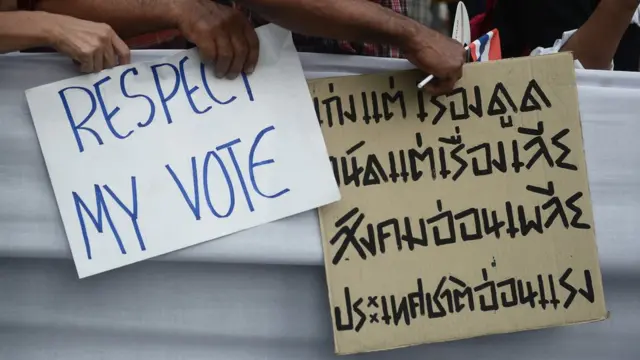 RESPECT
MY VOTE
เก่งแต่เรื่องดูด
ถนัดแต่เรื่องเลีย
สังคมอ่อนเพลีย
ประเทศชาติอ่อนแรง